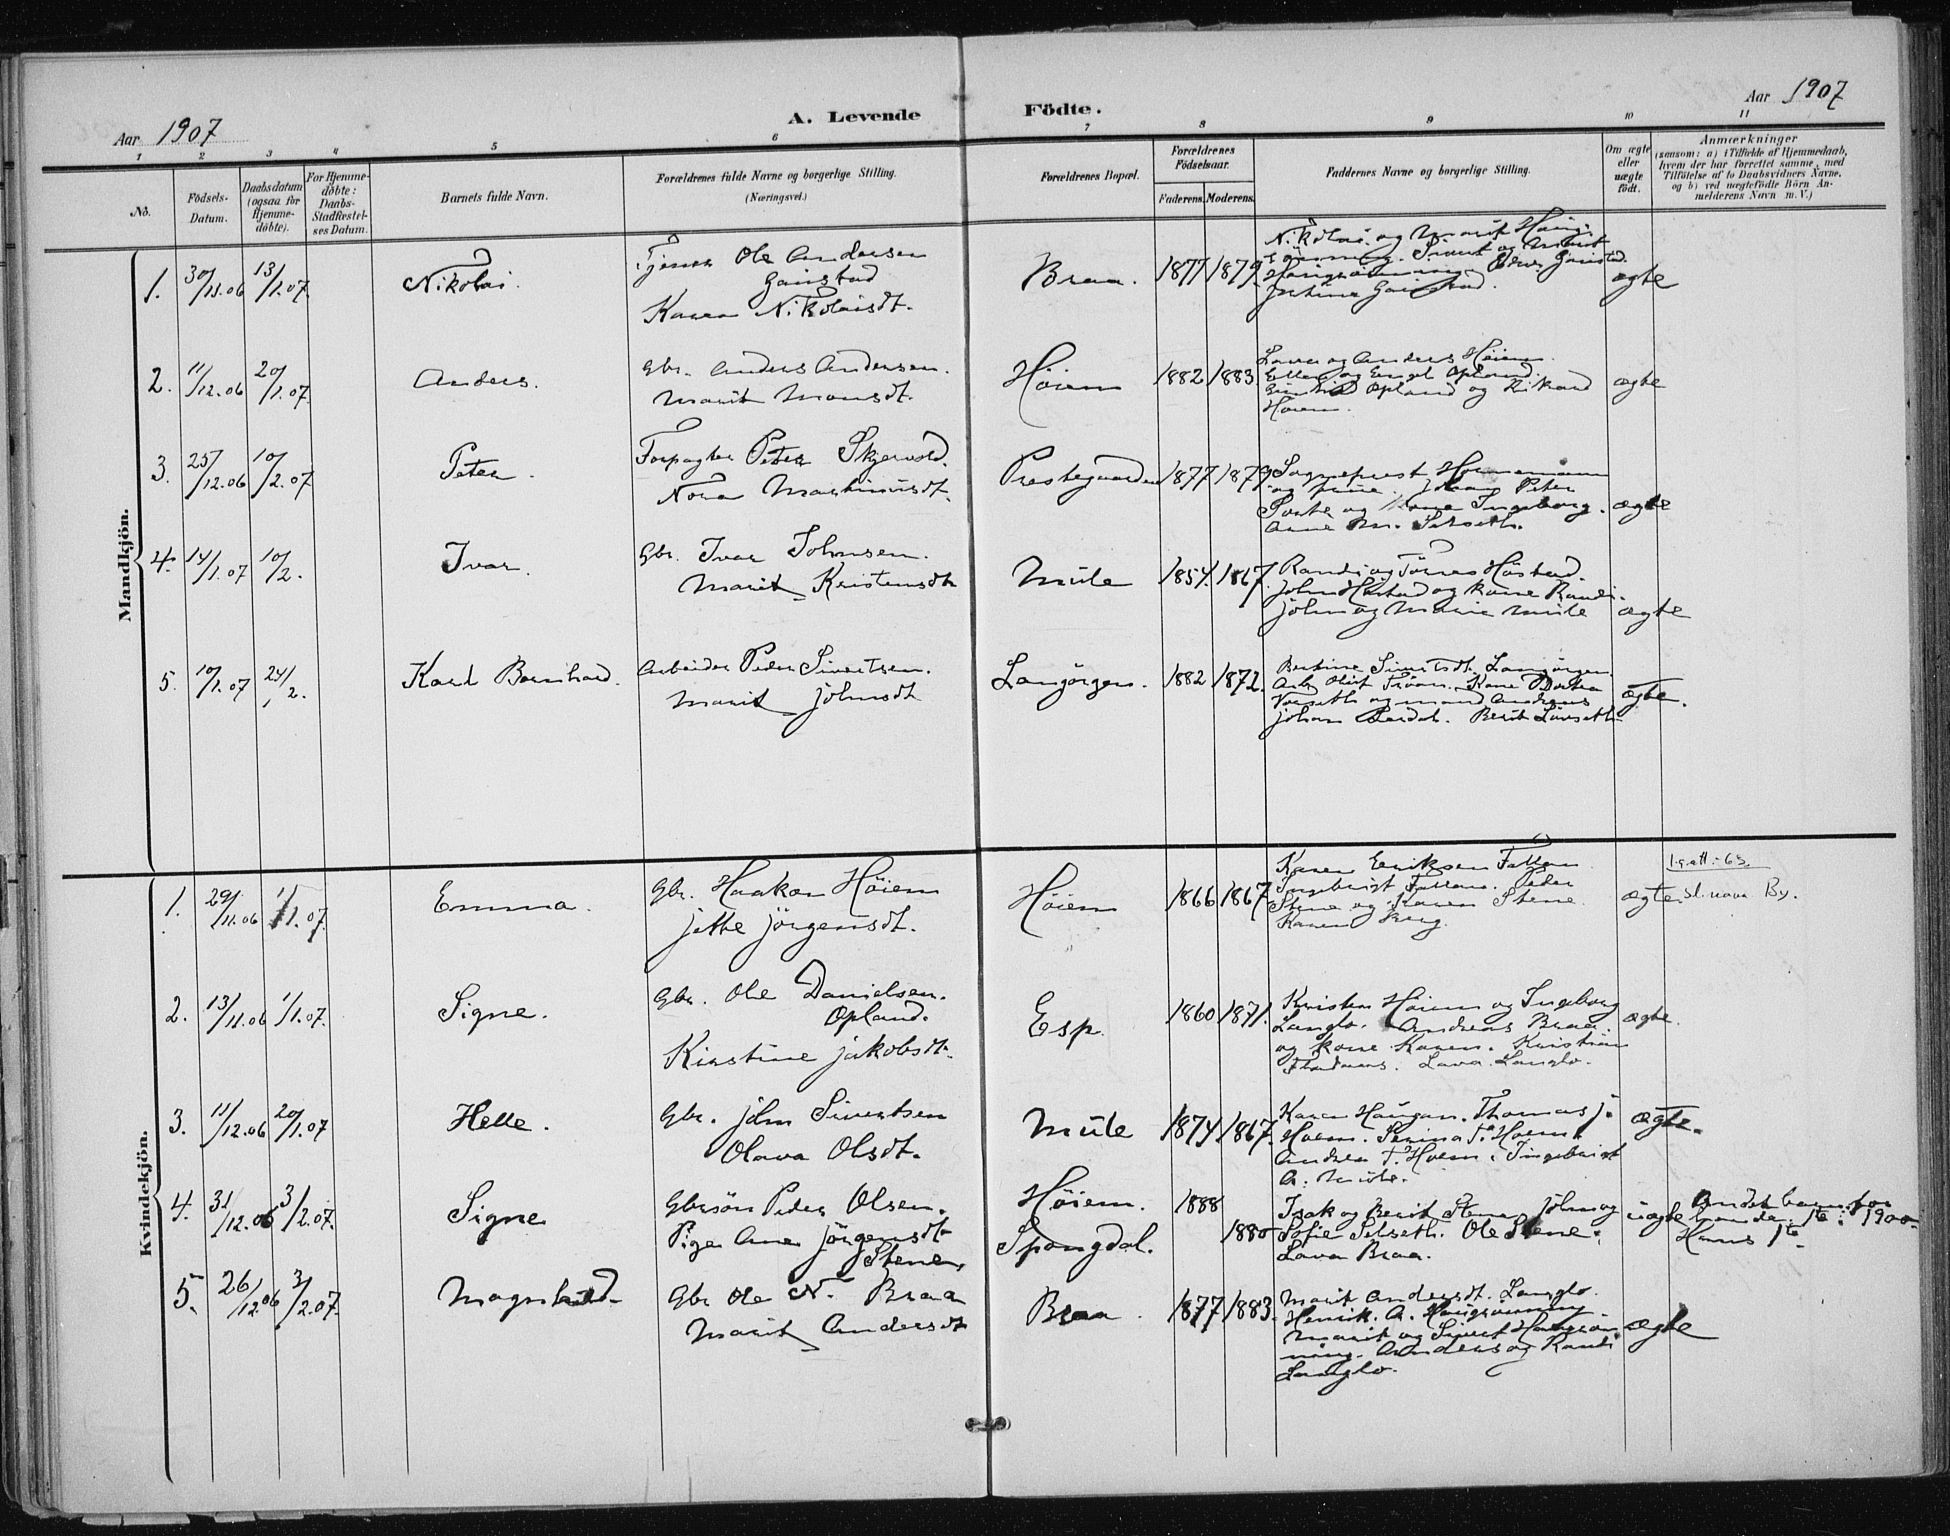 Aar 1907
A. Levende Födte.
Aar 1907
1 2 3 4 5 6 7 8 9 10 11
No.
Födsels-
Datum.
Daabsdatum
(ogsaa for
Hjemme-
döbte).
For Hjemme-
döbte:
Daabs-
Stadfæstel-
ses Datum.
Barnets fulde Navn.
Forældrenes fulde Navne og borgerlige Stilling.
(Næringsvei.)
Forældrenes Bopæl.
Forældrenes
Födselsaar.
Faderens. Moderens.
Faddernes Navne og borgerlige Stilling.
Om ægte
eller
uægte
födt.
Anmærkninger
(saasom: a) i Tilfælde af Hjemmedaab,
hvem der har forrettet samme, med
Tilföielse af to Daabsvidners Navne,
og b) ved uægtefödte Börn An-
melderens Navn m. V.)
Mandkjön.
1. 30/11.06 13/1.07. Nikolai.
Tjener Ole Andersen
Gaustad
Karen Nikolaisdt.
Braa. 1877 1879.
Nikolai og Marit
Sivert og Marit
ægte
2. 11/12.06 20/1.07. Anders.
Gbr. Anders Andersen.
Marit Monsdt.
Höiem 1882 1883.
Lava og Anders Höiem
Ellen og Engel Opland.
Opland og Rikard
Höiem.
ægte
3. 25/12.06 10/2.07 Peter.
Forpagter Peter Skjervold.
Nora Martinusdt.
Prestegaarden 1877 1879
Sogneprest Hornemann
og frue. Johan Peter
og Kone Ingeborg.
Anne M. Selseth.
ægte
4. 14/1.07 10/2. Ivar.
Gbr. Ivar Johnsen.
Marit Kristensdt.
Mule 1854. 1867.
Randi og Törres Höstad.
John Höstad og kone Randi.
John og Marie Mule
ægte
5. 10/1.07 24/2. Karl Bernhard.
Arbeider Peder Sivertsen.
Marit Johnsdt
Langörgen. 1882 1872.
Bertine Sivertsdt. Langörgen
Arb. Olert Kone Dortea
og mand Andreas
Johan Berit Lövseth
ægte.
Kvindekjön.
1. 29/11.06 1/1.07. Emma.
Gbr. Haakon Höiem
Jette Jörgensdt.
Höiem 1866 1867
Karen Eriksen
Ingebrigt Peder
Stene og Karen Stene.
Karen Berg.
ægte.
By.
2. 13/11.06 1/1.07. Signe.
Gbr. Ole Danielsen.
Opland.
Kirstine Jakobsdt.
Esp. 1860 1871.
Kristen Höiem og Ingeborg
Langlo. Andreas Braa.
og kone Karen. Kristian
Lava Langlo.
ægte.
3. 11/12.06 20/1.07 Helle.
Gbr. John Sivertsen
Olava Olsdt.
Mule 1874 1867.
Karen Haugan. Thomas J.
Hoem. Serina T. Hoem.
Andrea T. Hoem. Ingebrigt
A. Mule.
ægte.
4. 31/12.06 3/2.07. Signe
Gbrsön Peder Olsen.
Pige Ane Jörgensdt
Stene.
Höiem. 1888
Spongdal. 1880
Isak og Berit Stene. John og
Sofie Selseth. Ole Stene.
Lava Braa.
uægte
Andet barn for
hende. 1ste: 1900.
Hans 1ste.
5. 26/12.06 3/2.07. Magnhild.
Gbr Ole N. Braa
Marit Andersdt
Braa. 1877 1883.
Marit Andersdt. Langlo.
Henrik. A. Haugrönning.
Marit og Sivert Haugrön-
ning. Anders og Randi
Langlo.
ægte